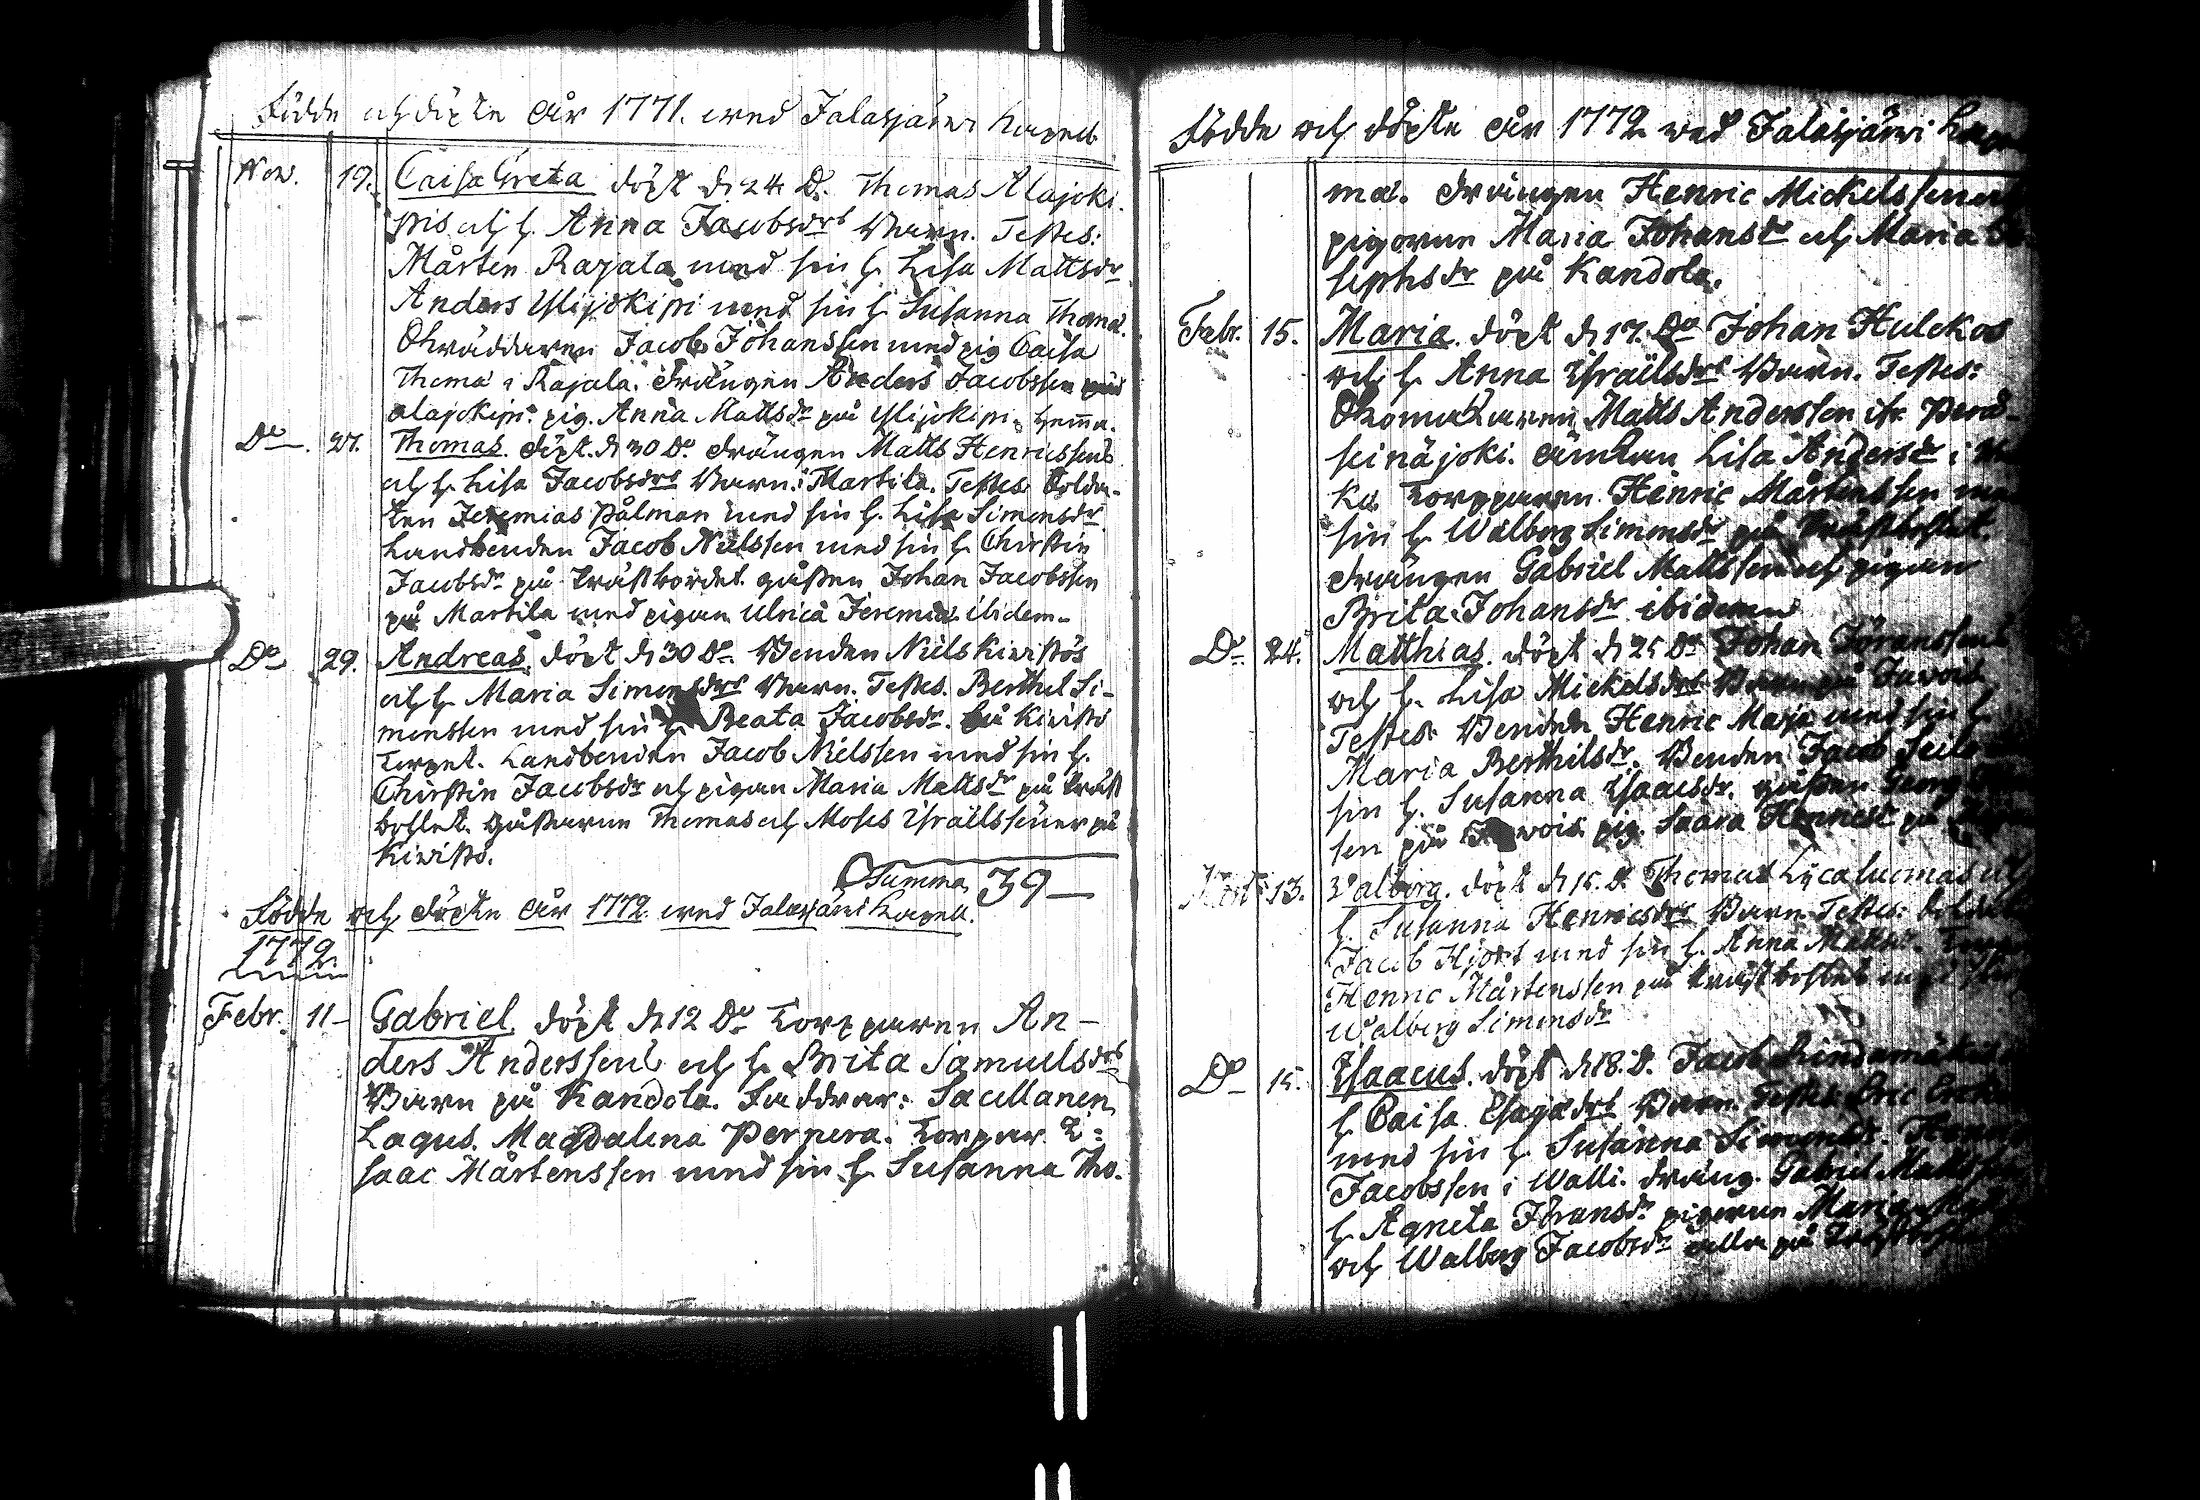 Födde och döpte åhr 1771. wed Jalasjärwi Kapell
Nov. 19. Caisa Greta döpt d. 24 Do. Thomas Alajoki-
pis och h. Anna Jacobsdrs Barn. Testes:
Mårten Rajala med sin h. Lisa Mattsdr
Anders Ylijokipi med sin h. Susanna Thomæ.
Jacob Johanssen med pig Caisa
Thomæ i Rajala. Drängen Anders Jacobssen på
alajokipi. pig. Anna Mattsdr på Ylijokipi hemma.
Do 27. Thomas. döpt. d. 30 Do. Drängen Matts Henricssens
och h. Lisa Jacobsdrs Barn. i Martila. Testes Solda-
ten Jeremias Pålman med sin h. Lisa Simonsdr
Landbonden Jacob Nielssen med sin h. Chirstin
Jacobsdr på gåssen Johan Jacobssen
på Martila med pigan Ulrica Jeremiæ ibidem.
Do 29. Andreas. döpt d. 30 Do. Bonden Niels Kiwistös
och h. Maria Simonsdrs Barn. Testes. Berthel Si-
monssen med sin h. Beata Jacobsdr. på Kiwistö
Torpet. Landbonden Jacob Nielssen med sin h.
Chirstin Jacobsdr och pigan Maria Mattsdr på Präst
bohlet. Gåssarne Thomas och Moses Israëlssöner på
Kiwistö.
Summa 39
Födde och döpte åhr 1772 wed Jalasjärwi Kapell.
1772
Febr. 11 Gabriel döpt d. 12 Do Torpparen An-
ders Anderssens och h. Brita Samuelsdrs
Barn på Kandola. Faddrar: Sacellanen
Lagus. Magdalena Pernera. Torpar. I-
saac Mårtenssen med sin h. Susanna Tho-
Födde och döpte åhr 1772 wed Jalasjärwi
mæ. Drängen Henric Mickelssen och
pigorne Maria Johansdr och Maria Jo-
sephsdr på Kandola.
Febr. 15. Maria. döpt d. 17. Do Johan Hulckos
och h. Anna Israëlsdrs Barn. Testes:
Matts Anderssen fr. Perä-
seinäjoki. änkan Lisa Andersdr i
Torpparen Henric Mårtenssen med
sin h. Walborg Simonsdr på Prästbohlet.
drängen Gabriel Mattssen och pigan
Brita Johansdr ibidem
Do 24. Matthias. döpt d. 25 Do Johan Jöranssens
och h. Lisa Mickelsdrs Barn på Jawois
Testes: Bonden Henric Maja med sin h.
Maria Berthilsdr. Bonden Jacob
sin h. Susanna Isaacsdr. gåssen Georg
sen på Jawois pig. Saara på
13. Valborg. döpt d. 15. D. Thomas Lycaluomas och
h. Susanna Henricsdrs Barn. Testes:
Jacob Hjort med sin h. Anna Mattsdr.
Henric Mårtenssen på Prästbohlet
Walborg Simonsdr
Do 15. Isaacus. döpt d. 18. D. Jacob
h. Caisa Barn. Testes: Eric
med sin h. Susanna Simonsdr.
Jacobssen i Walli. dräng. Gabriel Mattssen
h. Agneta Jöransdr pigorne Maria
och Walborg Jacobsdr alla på